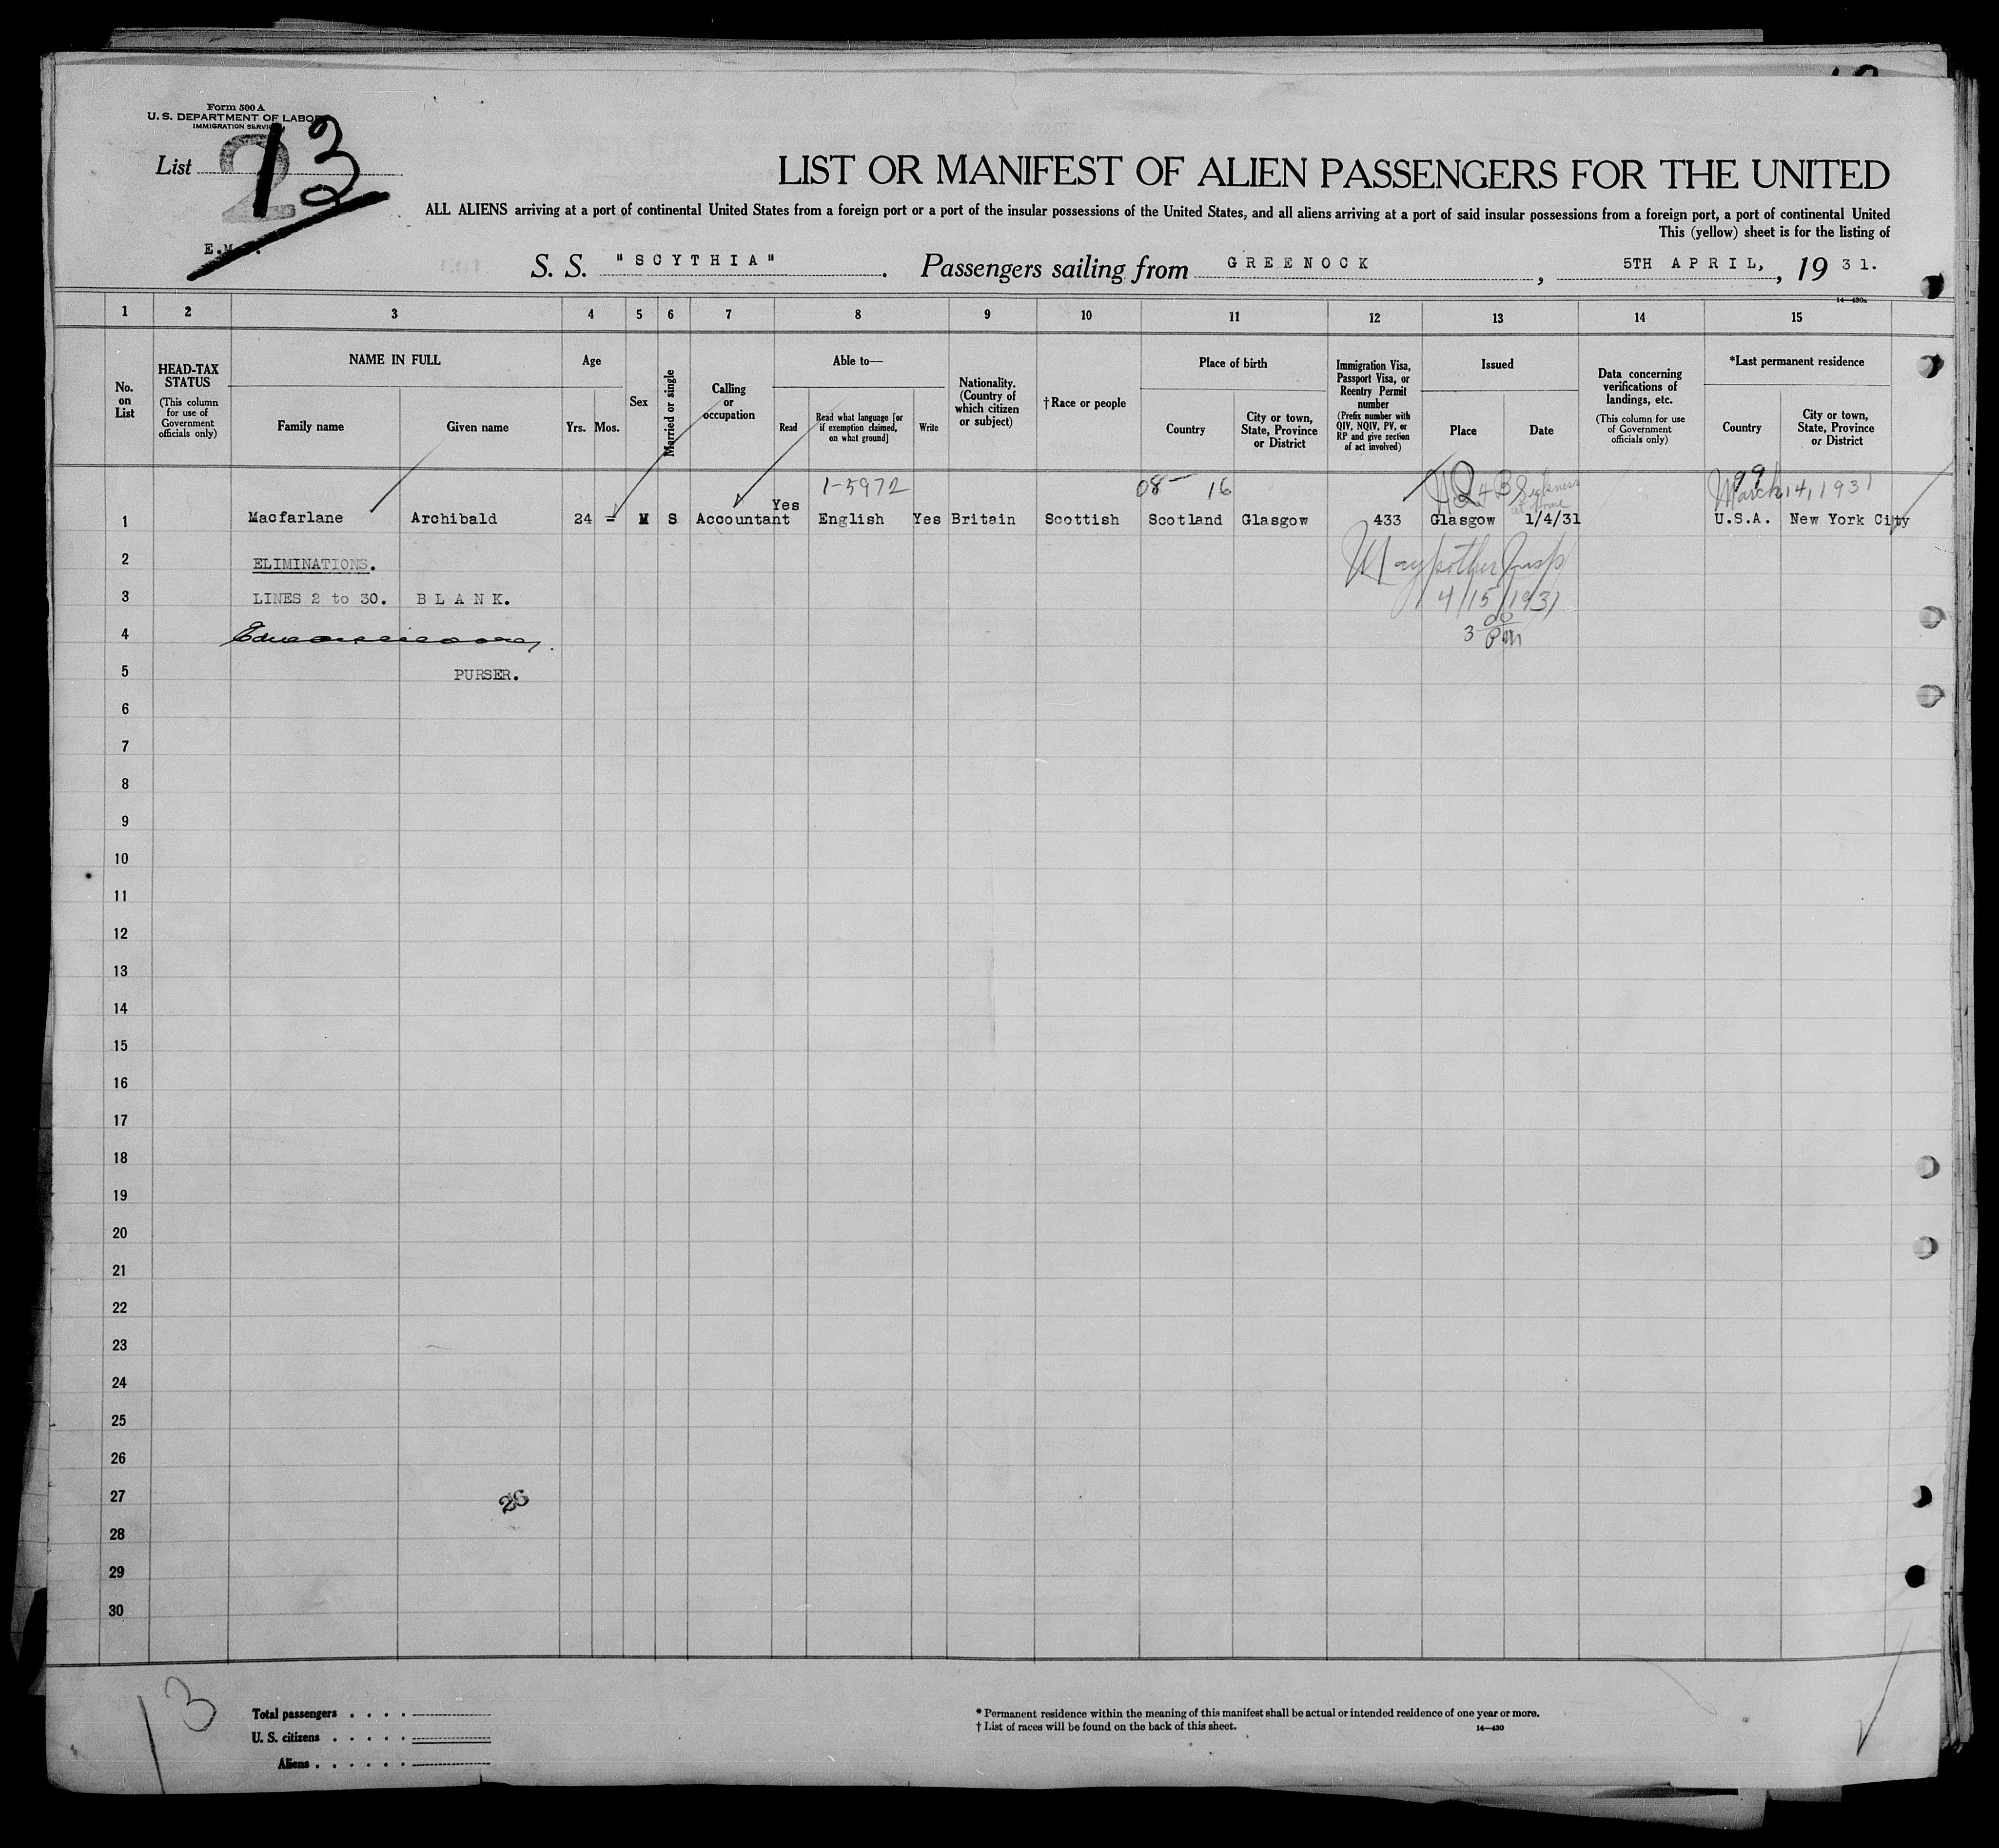 Form 500 A
U. S. DEPARTMENT OF LABOR
IMMIGRATION SERVICE
List 2 13
LIST OR MANIFEST OF ALIEN PASSENGERS FOR THE UNITED
ALL ALIENS arriving at a port of continental United States from a foreign port or a port of the insular possessions of the United States, and all aliens arriving at a port of said insular possessions from a foreign port, a port of continental United
This (yellow) sheet is for the listing of
S. S. "SCYTHIA". Passengers sailing from GREENOCK, 5TH APRIL, 1931.
14—430a
1 2 3 4 5 6 7 8 9 10 11 12 13 14 15
No. on List
HEAD-TAX STATUS
(This column for use of Government officials only)
NAME IN FULL
Family name
Given name
Age
Yrs. Mos.
Sex
Married or single
Calling or occupation
Able to—
Read
Read what language [or if exemption claimed, on what ground]
Write
Nationality. (Country of which citizen or subject)
† Race or people
Place of birth
Country
City or town, State, Province or District
Immigration Visa, Passport Visa, or Reentry Permit number
(Prefix number with QIV, NQIV, PV, or RP and give section of act involved)
Issued
Place
Date
Data concerning verifications of landings, etc.
(This column for use of Government officials only)
*Last permanent residence
Country
City or town, State, Province or District
1-5972 08- 16 99 March 14, 1931
1 Macfarlane Archibald 24 - M S Accountant Yes English Yes Britain Scottish Scotland Glasgow 433 Glasgow 1/4/31 U.S.A. New York City
2 ELIMINATIONS.
3 LINES 2 to 30. BLANK. 4/15/1931
4 3 00 PM
5 PURSER.
6
7
8
9
10
11
12
13
14
15
16
17
18
19
20
21
22
23
24
25
26
27 26
28
29
30
13
Total passengers . . . .
U. S. citizens . . . . .
Aliens . . . . . .
* Permanent residence within the meaning of this manifest shall be actual or intended residence of one year or more.
† List of races will be found on the back of this sheet.
14—430